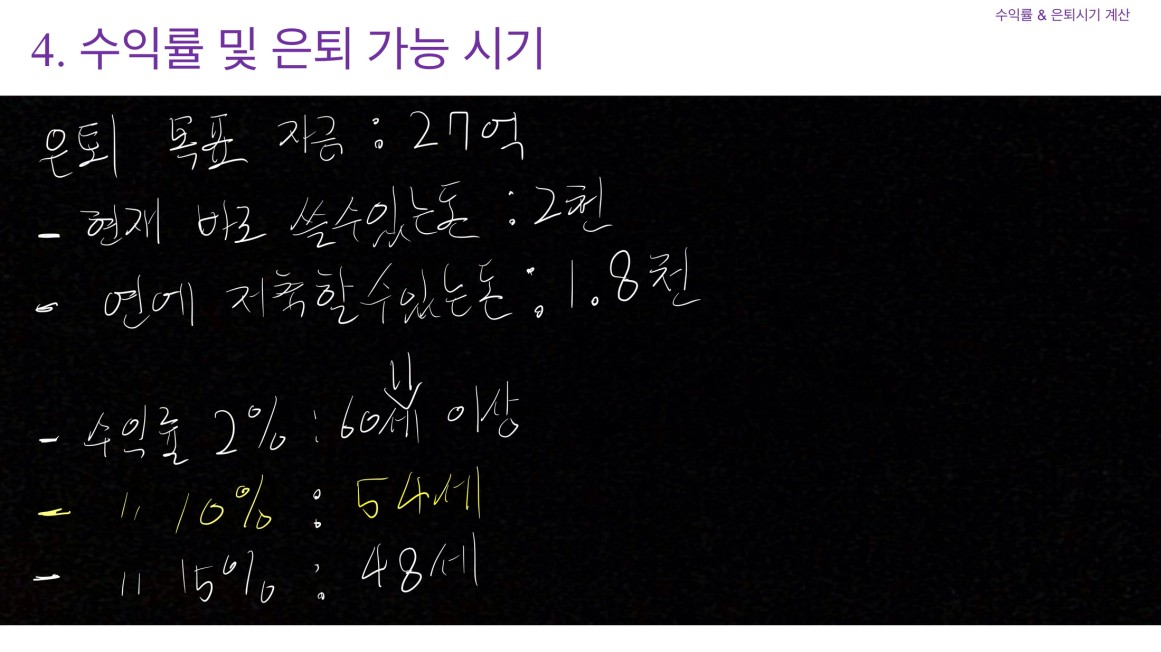 수익률 & 은퇴시기 계산
4. 수익률 및 은퇴 가능 시기
은퇴 목표 자금 : 27억
- 현재 바로 쓸수있는돈 : 2천
- 연에 저축할수있는돈 : 1.8천
- 수익률 2% : 60세 이상
- " 10% : 54세
- " 15% : 48세